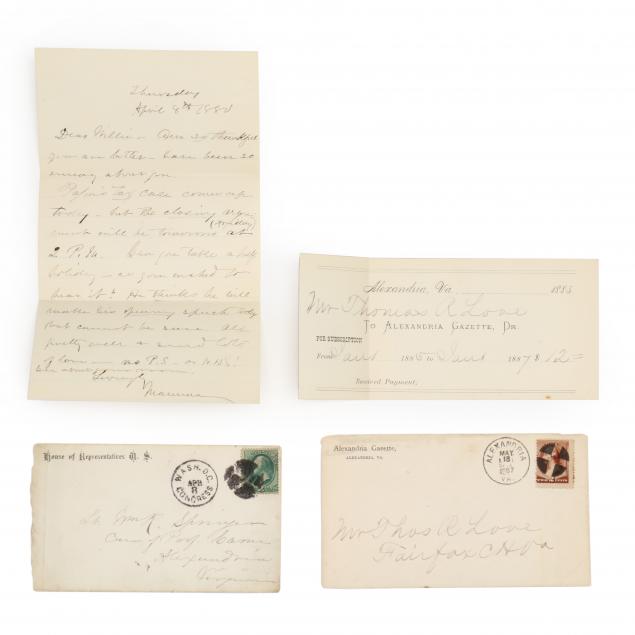 Thursday
April 8th 1880
Dear Willie - Am so thankful
you are better - have been so
uneasy about you.
Papa's Tax case comes up
today - but the closing argu
(Monday)
ment will be tomorrow at
2 P.M. Can you take a half
holiday - as you wished to
hear it? He thinks he will
make his opening speech today
but cannot be sure. All
pretty well & send lots
of love - no P.S. - or N.B.!
Lovingly
Mamma
Alexandria, Va. 1885
Mr Thomas R Love
To ALEXANDRIA GAZETTE, DR.
FOR SUBSCRIPTION
From 1885 to 1887 $ 12=
Received Payment,
House of Representatives U. S.
WASH. D.C.
APR
8
CONGRESS
Lt Wm R. Springer
Care of
Alexandria
Virginia
Alexandria Gazette,
ALEXANDRIA, VA.
ALEXANDRIA
MAY
18
1887
VA.
Mr Thos R Love
Fairfax C H Va